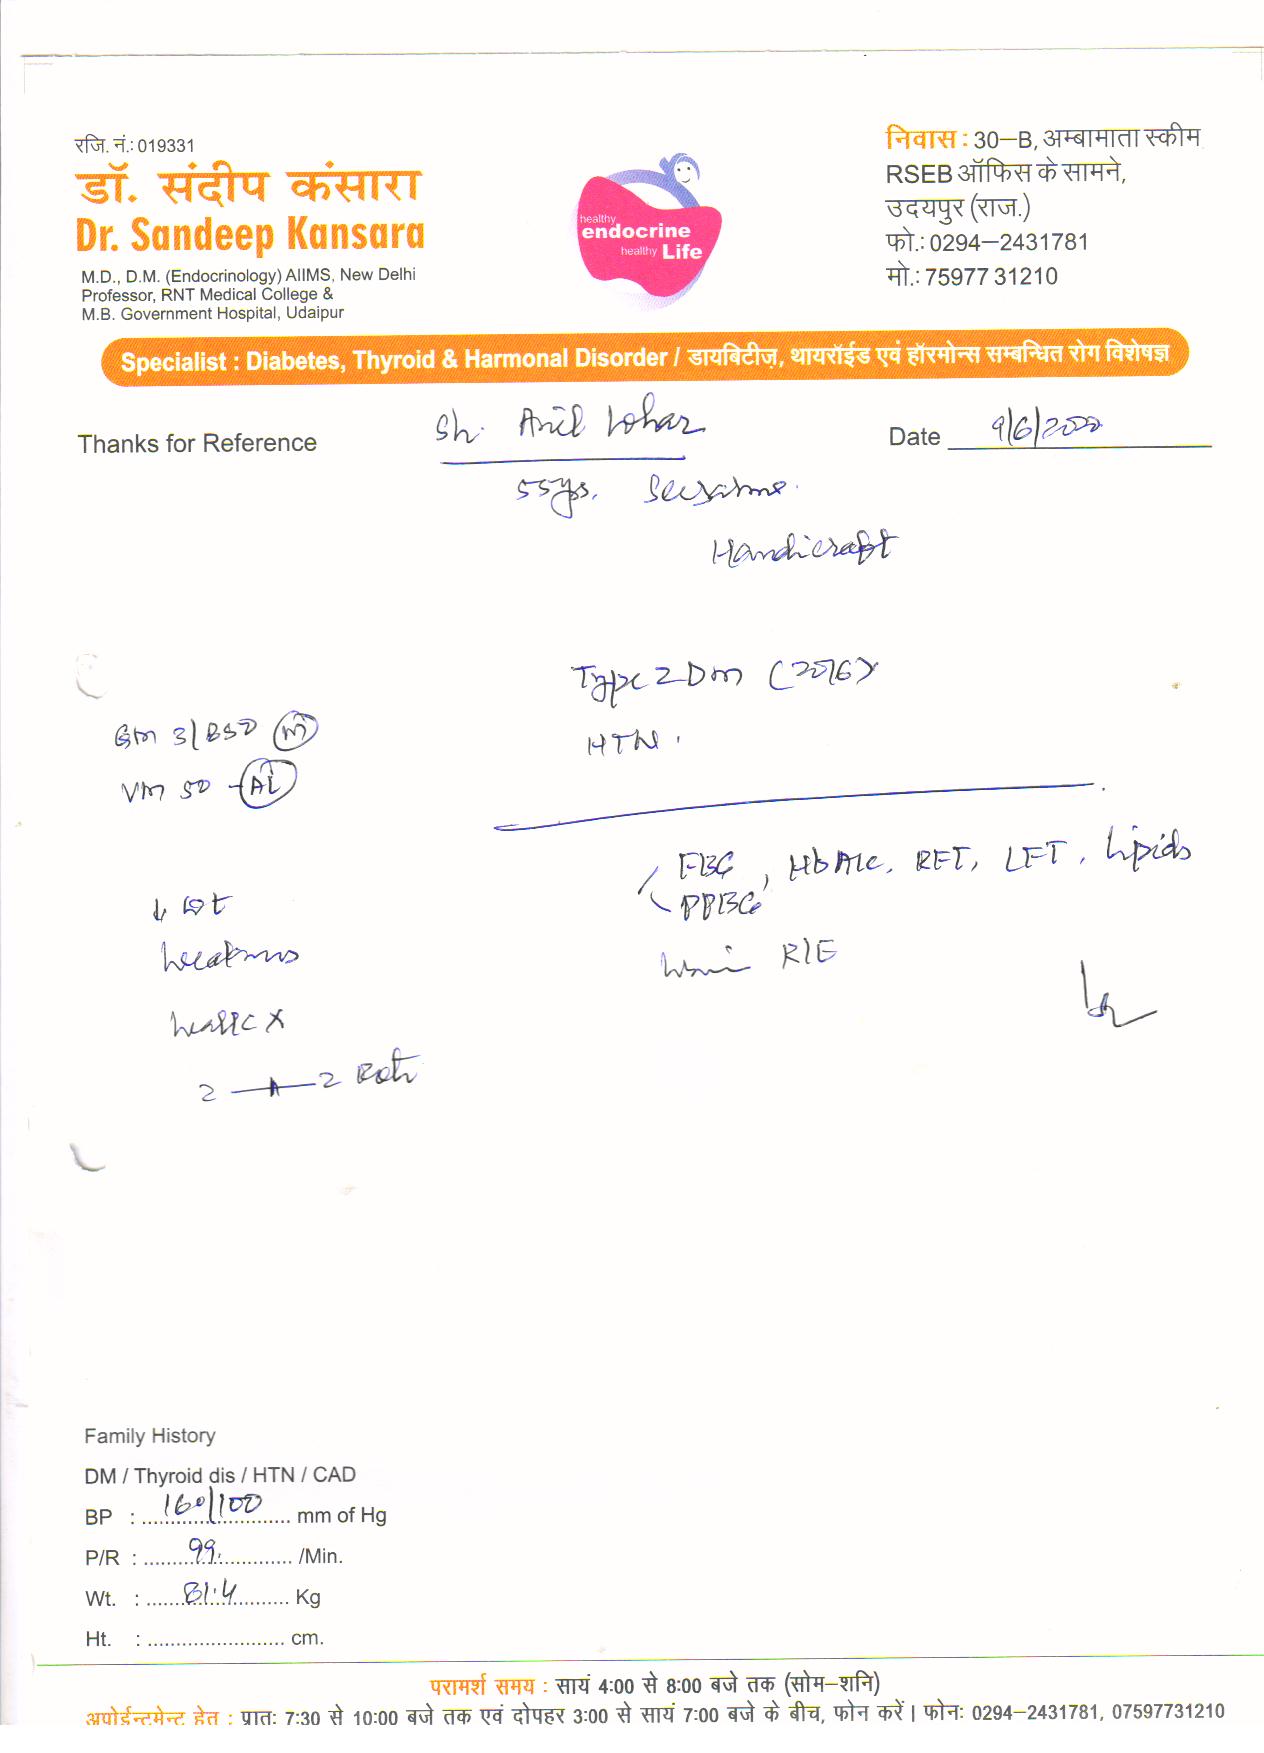 रजि. नं.: 019331
डॉ. संदीप कंसारा
Dr. Sandeep Kansara
M.D., D.M. (Endocrinology) AIIMS, New Delhi
Professor, RNT Medical College &
M.B. Government Hospital, Udaipur
healthy
endocrine
healthy Life
निवास : 30–B, अम्बामाता स्कीम
RSEB ऑफिस के सामने,
उदयपुर (राज.)
फो.: 0294–2431781
मो.: 75977 31210
Specialist : Diabetes, Thyroid & Harmonal Disorder / डायबिटीज़, थायरॉईड एवं हॉरमोन्स सम्बन्धित रोग विशेषज्ञ
Thanks for Reference
Sh. Anil Lohar
Date 9/6/
55ys.
Handicraft
Type 2 DM (2016)
HTN.
GM 3/850 M
VM 50 - AL
FBG, HbA1c, RFT, LFT, Lipids
PPBG
R/E
↓ wt
Weakness
Walk X
2 2 Roti
Family History
DM / Thyroid dis / HTN / CAD
BP : 160/100 mm of Hg
P/R : 99 /Min.
Wt. : 81.4 Kg
Ht. : cm.
परामर्श समय : सायं 4:00 से 8:00 बजे तक (सोम–शनि)
अपोईन्टमेन्ट हेतु : प्रातः 7:30 से 10:00 बजे तक एवं दोपहर 3:00 से सायं 7:00 बजे के बीच, फोन करें । फोनः 0294–2431781, 07597731210